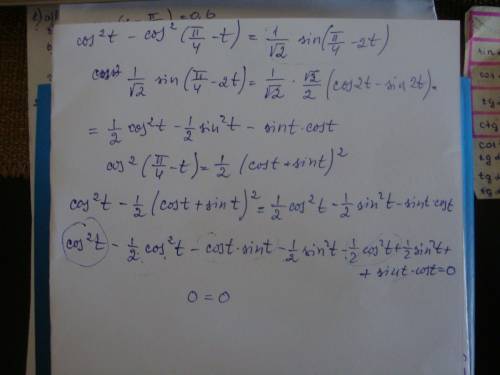 cos²t - cos²(π/4 - t) = 1/√2 sin(π/4 - 2t)
1/√2 sin(π/4 - 2t) = 1/√2 · √2/2 (cos2t - sin2t) =
= 1/2 cos²t - 1/2 sin²t - sint·cost
cos²(π/4 - t) = 1/2 (cost + sint)²
cos²t - 1/2 (cost + sint)² = 1/2 cos²t - 1/2 sin²t - sint cost
cos²t - 1/2 cos²t - cost·sint - 1/2 sin²t - 1/2 cos²t + 1/2 sin²t +
+ sint·cost = 0
0 = 0